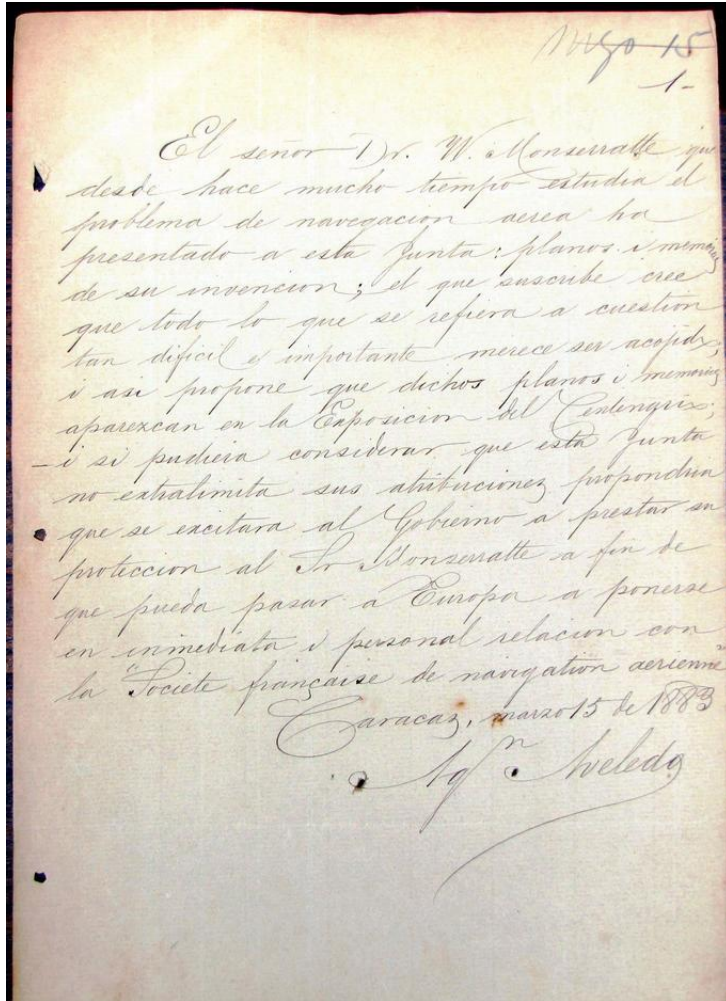 Mzo 15
1-
El señor Dr. W. Monserratte que
desde hace mucho tiempo estudia el
problema de navegacion aerea ha
presentado a esta Junta: planos i memorias
de su invencion; el que suscribe cree
que todo lo que se refiera a cuestion
tan dificil e importante merece ser acojido;
i asi propone que dichos planos i memorias
aparezcan en la Exposicion del Centenario;
- i si pudiera considerar que esta Junta
no extralimita sus atribuciones propondria
que se excitara al Gobierno a prestar su
proteccion al Sr Monserratte a fin de
que pueda pasar a Europa a ponerse
en inmediata i personal relacion con
la "Societe française de navigation aerienne"
Caracas, marzo 15 de 1883
Agn. Aveledo